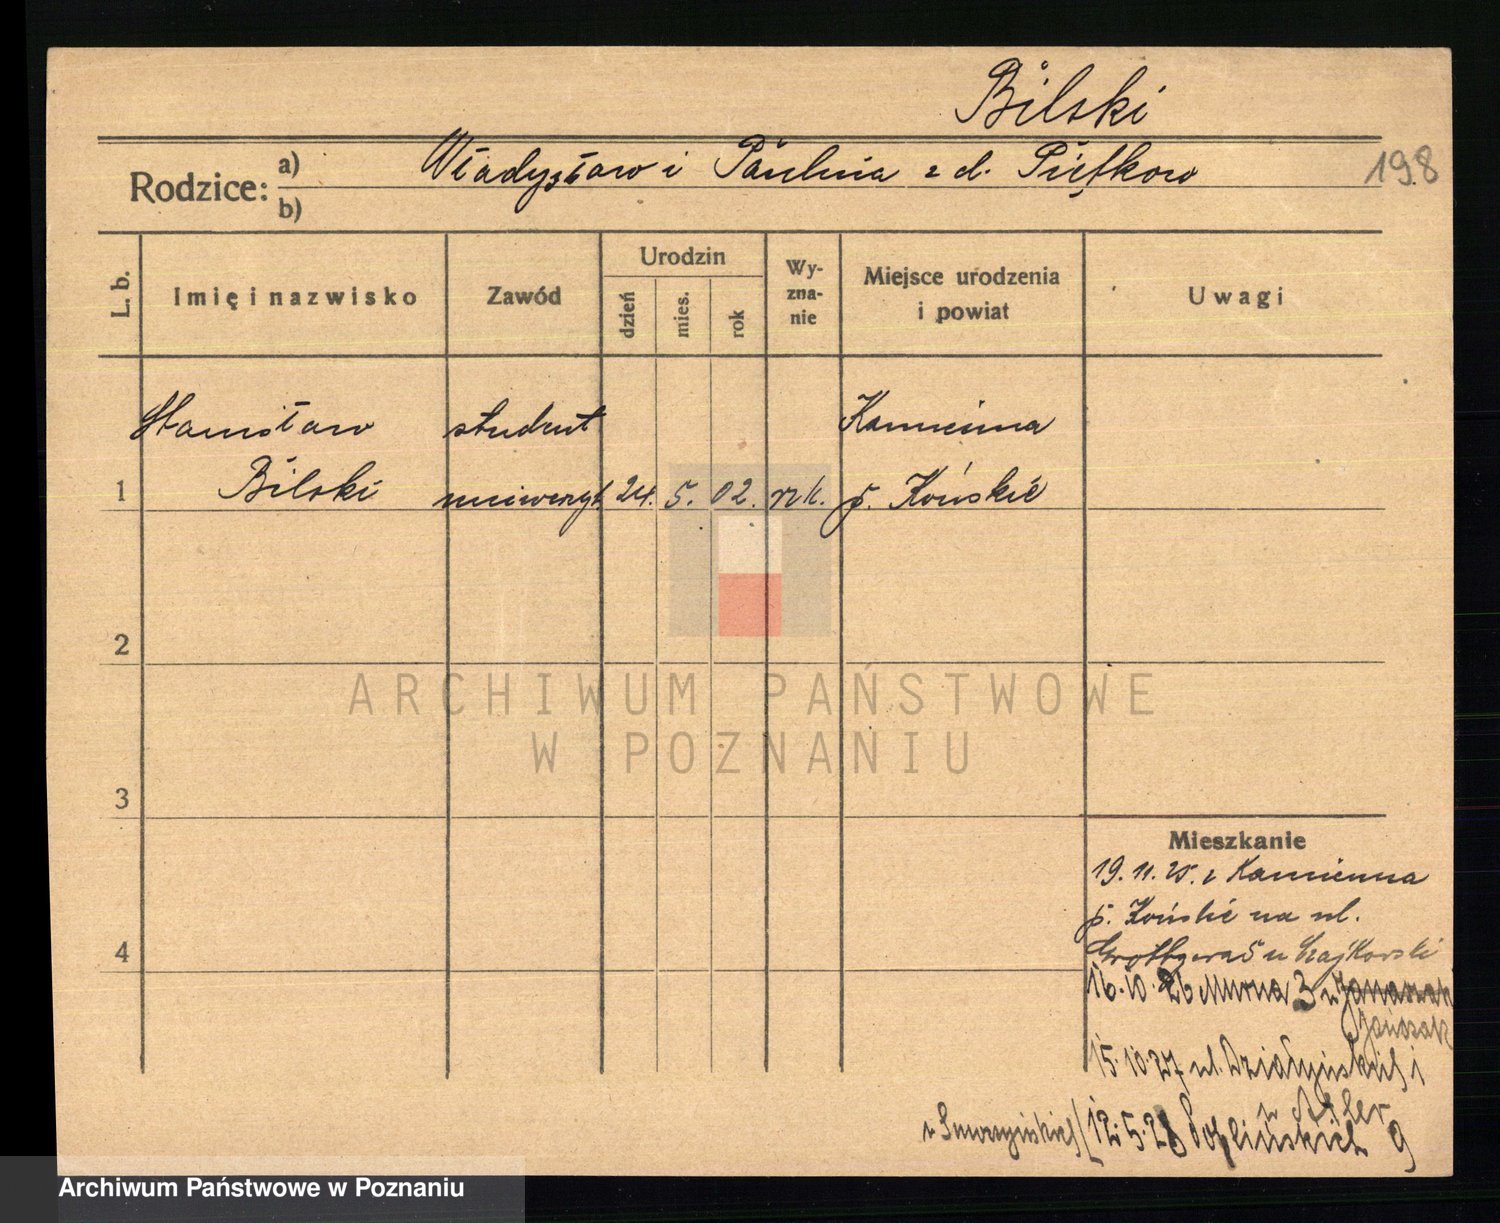 Bilski
Rodzice: a) Władysław i Paulina z d. Piętkow
b)
198
L. b.
Imię i nazwisko
Zawód
Urodzin
dzień
mies.
rok
Wy-
zna-
nie
Miejsce urodzenia
i powiat
Uwagi
Stanisław student Kamienna
1 Bilski uniwersyt. 24. 5. 02. rzk. p. Końskie
2
3
4
Mieszkanie
19.11.25. z Kamienna
p. Końskie na ul.
Grottgera 5 u Czajkorski
16.10.26 Murna 3 u Janaszak
Janószak
15.10.27 ul. Działyńskich 1
u Adler
u Smorzyńskiej (12.5.28 Poplińskich 9
ARCHIWUM PAŃSTWOWE
W POZNANIU
Archiwum Państwowe w Poznaniu